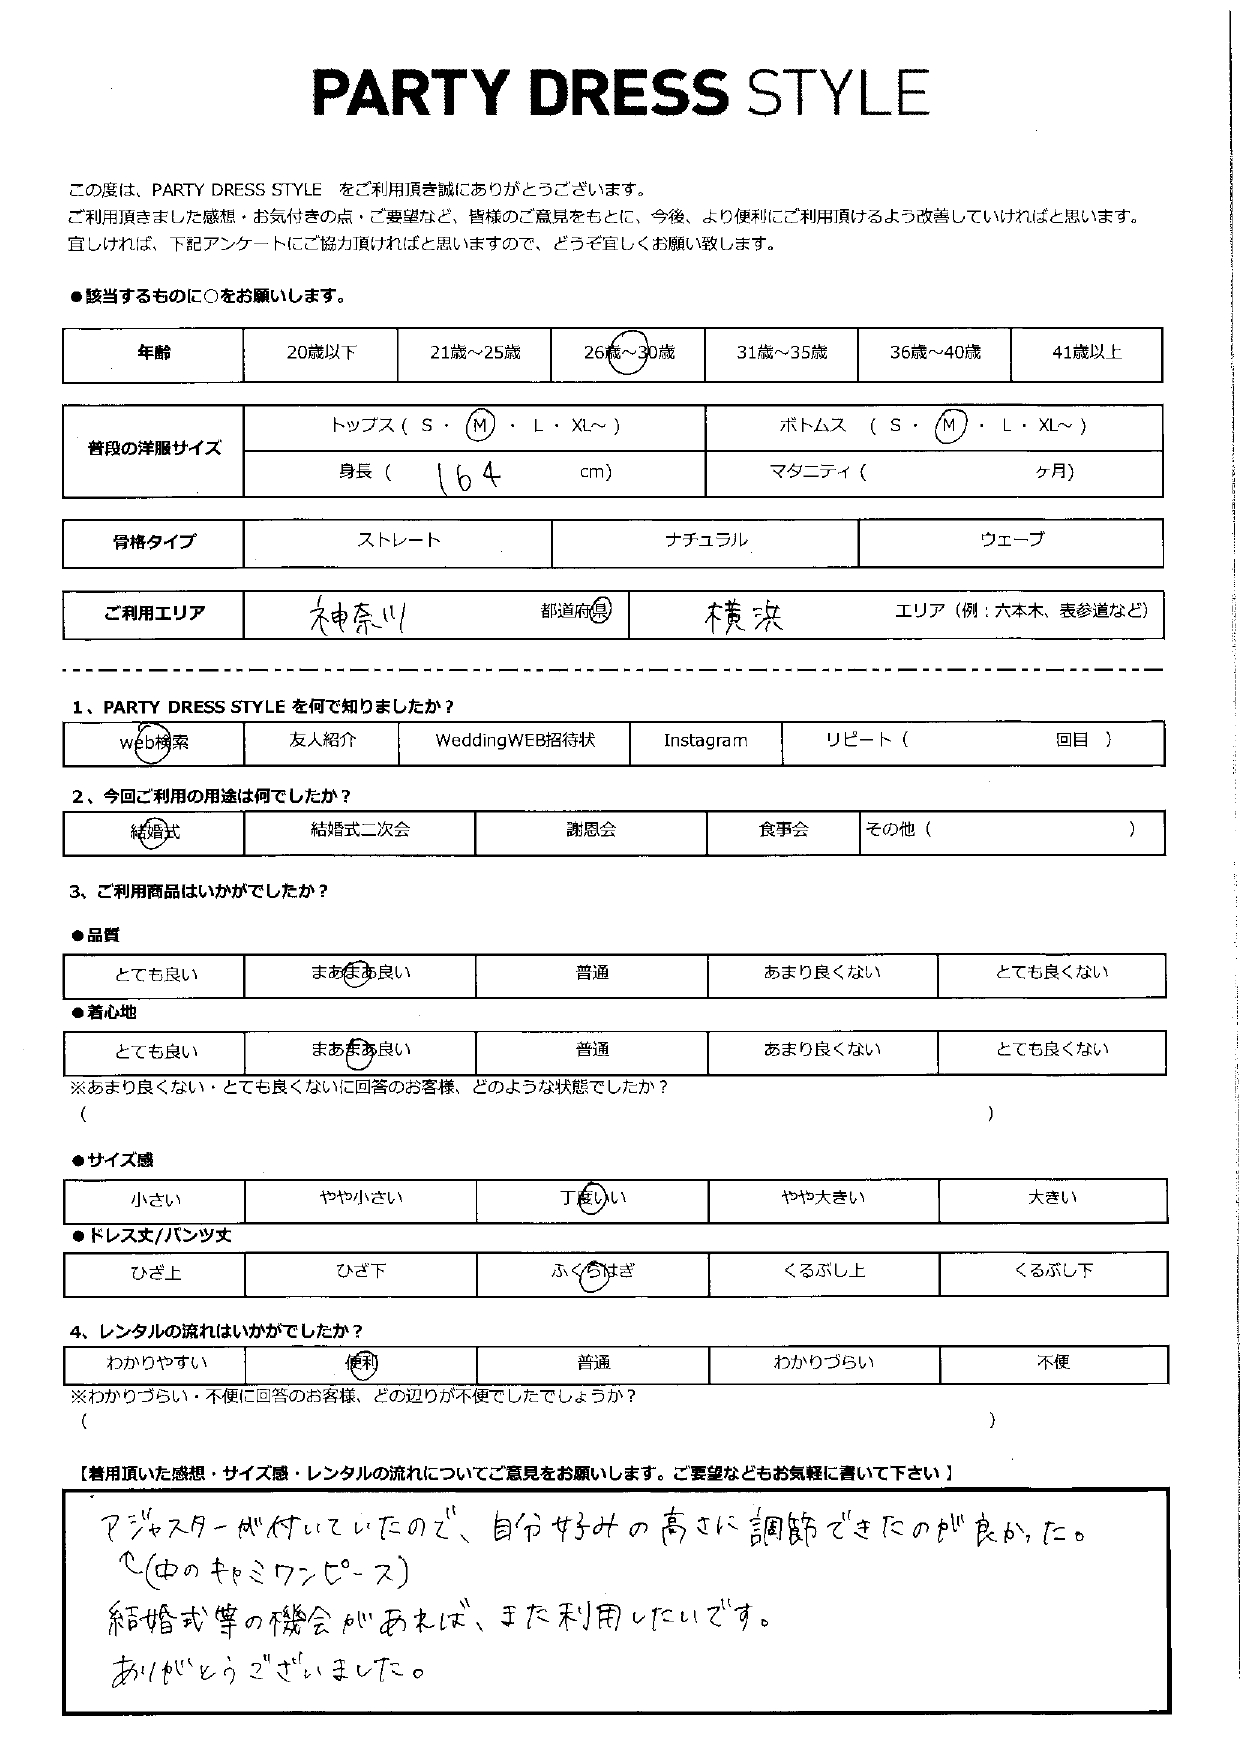 PARTY DRESS STYLE
この度は、PARTY DRESS STYLE をご利用頂き誠にありがとうございます。
ご利用頂きました感想・お気付きの点・ご要望など、皆様のご意見をもとに、今後、より便利にご利用頂けるよう改善していければと思います。
宜しければ、下記アンケートにご協力頂ければと思いますので、どうぞ宜しくお願い致します。
●該当するものに○をお願いします。
年齢 20歳以下 21歳～25歳 26歳～30歳 31歳～35歳 36歳～40歳 41歳以上
普段の洋服サイズ トップス ( S ・ M ・ L ・ XL～ ) ボトムス ( S ・ M ・ L ・ XL～ )
身長 ( 164 cm) マタニティ ( ヶ月)
骨格タイプ ストレート ナチュラル ウェーブ
ご利用エリア 神奈川 都道府県 横浜 エリア (例：六本木、表参道など)
1、PARTY DRESS STYLE を何で知りましたか？
web検索 友人紹介 WeddingWEB招待状 Instagram リピート ( 回目 )
2、今回ご利用の用途は何でしたか？
結婚式 結婚式二次会 謝恩会 食事会 その他 ( )
3、ご利用商品はいかがでしたか？
●品質
とても良い まあまあ良い 普通 あまり良くない とても良くない
●着心地
とても良い まあまあ良い 普通 あまり良くない とても良くない
※あまり良くない・とても良くないに回答のお客様、どのような状態でしたか？
( )
●サイズ感
小さい やや小さい 丁度いい やや大きい 大きい
●ドレス丈/パンツ丈
ひざ上 ひざ下 ふくらはぎ くるぶし上 くるぶし下
4、レンタルの流れはいかがでしたか？
わかりやすい 便利 普通 わかりづらい 不便
※わかりづらい・不便に回答のお客様、どの辺りが不便でしたでしょうか？
( )
【着用頂いた感想・サイズ感・レンタルの流れについてご意見をお願いします。ご要望などもお気軽に書いて下さい】
アジャスターが付いていたので、自分好みの高さに調節できたのが良かった。
↑(中のキャミワンピース)
結婚式等の機会があれば、また利用したいです。
ありがとうございました。